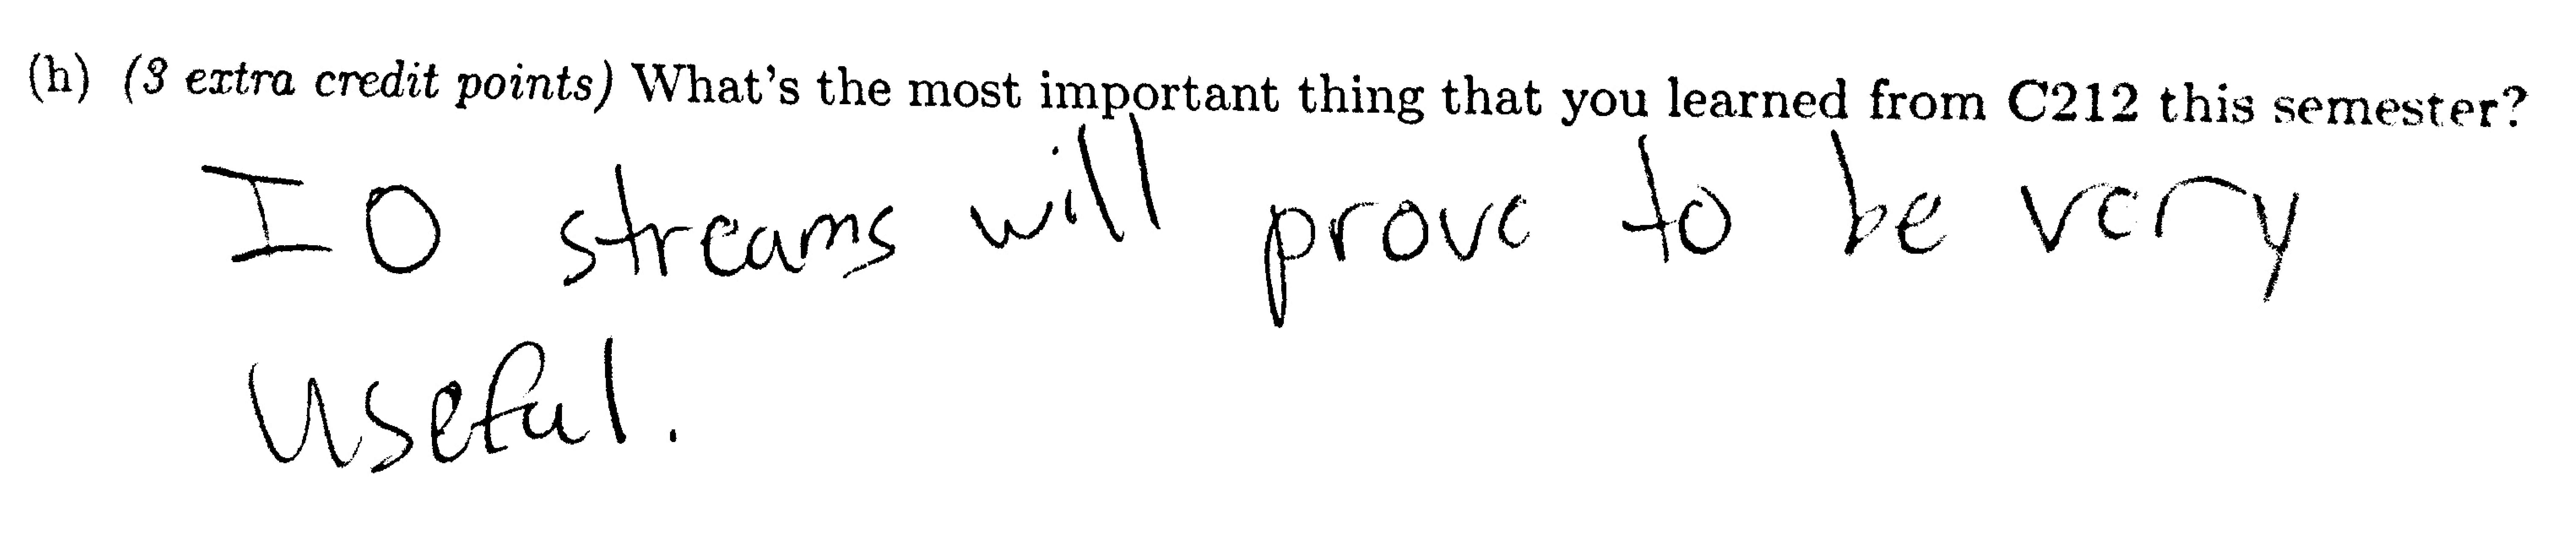 (h) (3 extra credit points) What's the most important thing that you learned from C212 this semester?
IO streams will prove to be very
useful.